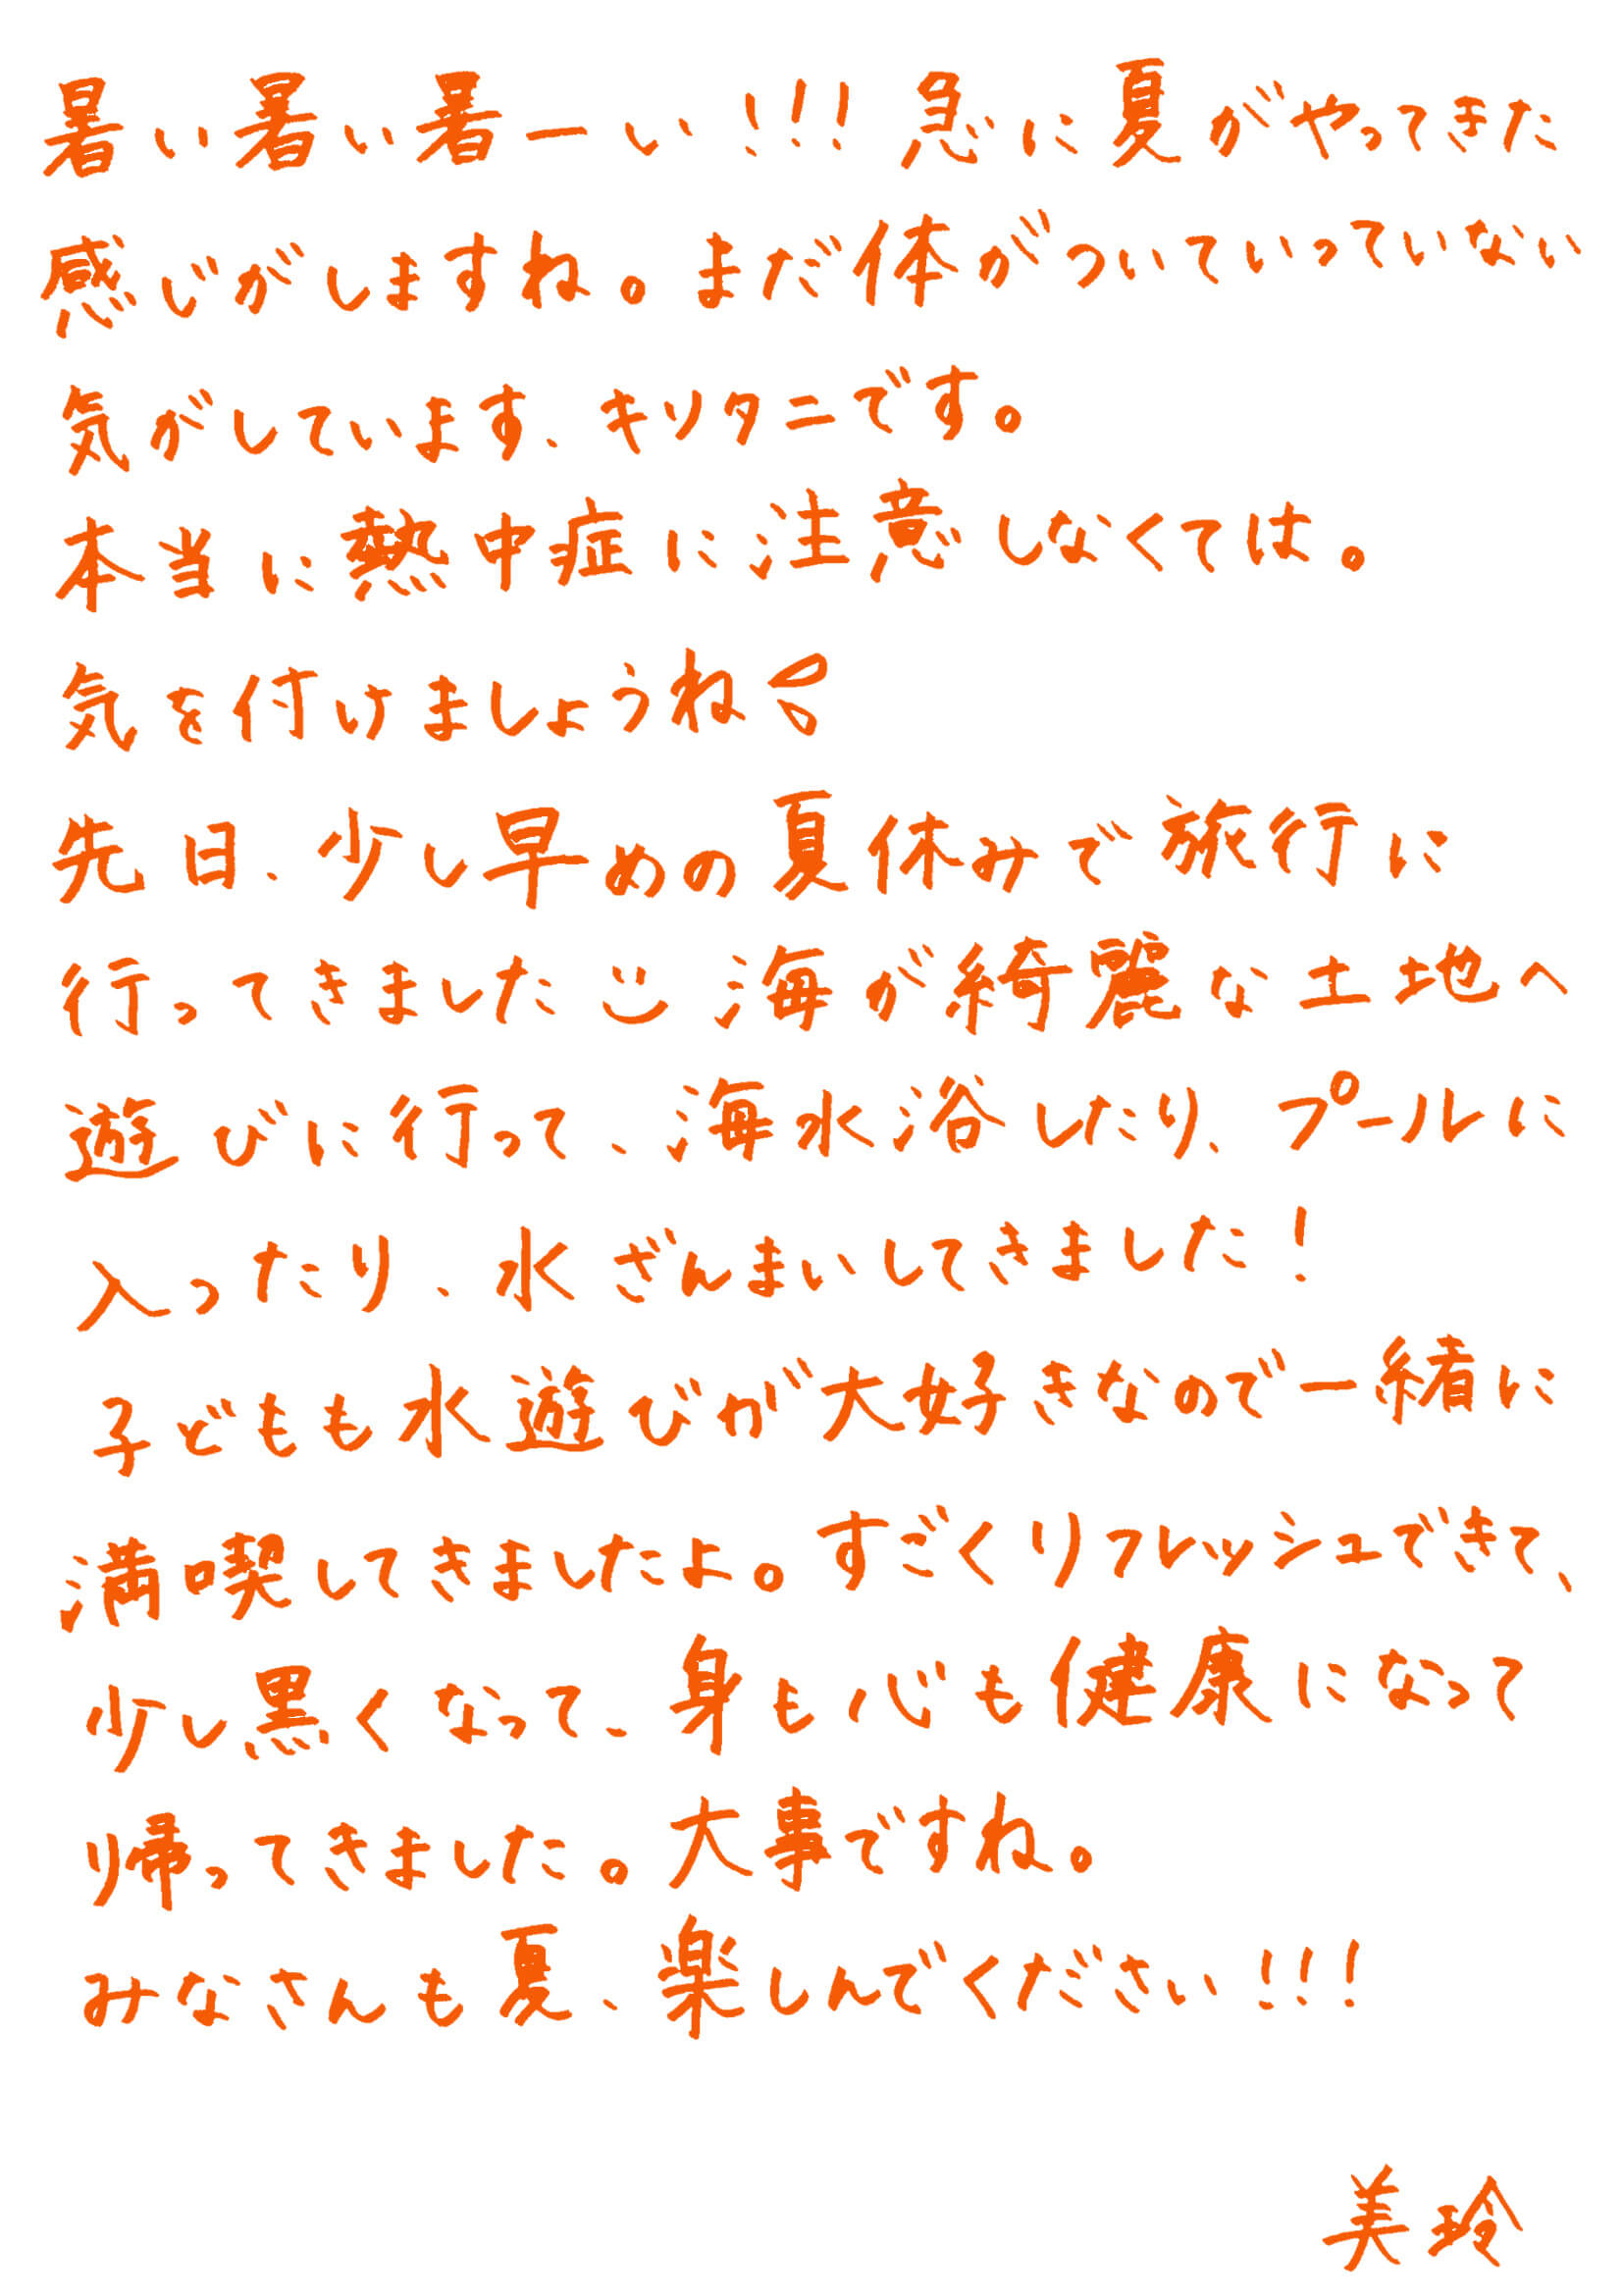 暑い暑い暑ーい!!! 急に夏がやってきた
感じがしますね。まだ体がついていっていない
気がしています、キリタニです。
本当に熱中症に注意しなくては。
気を付けましょうね
先日、少し早めの夏休みで旅行に
行ってきました 海が綺麗な土地へ
遊びに行って、海水浴したり、プールに
入ったり、水ざんまいしてきました!
子どもも水遊びが大好きなので一緒に
満喫してきましたよ。すごくリフレッシュできて、
少し黒くなって、身も心も健康になって
帰ってきました。大事ですね。
みなさんも夏、楽しんでください!!!
美玲